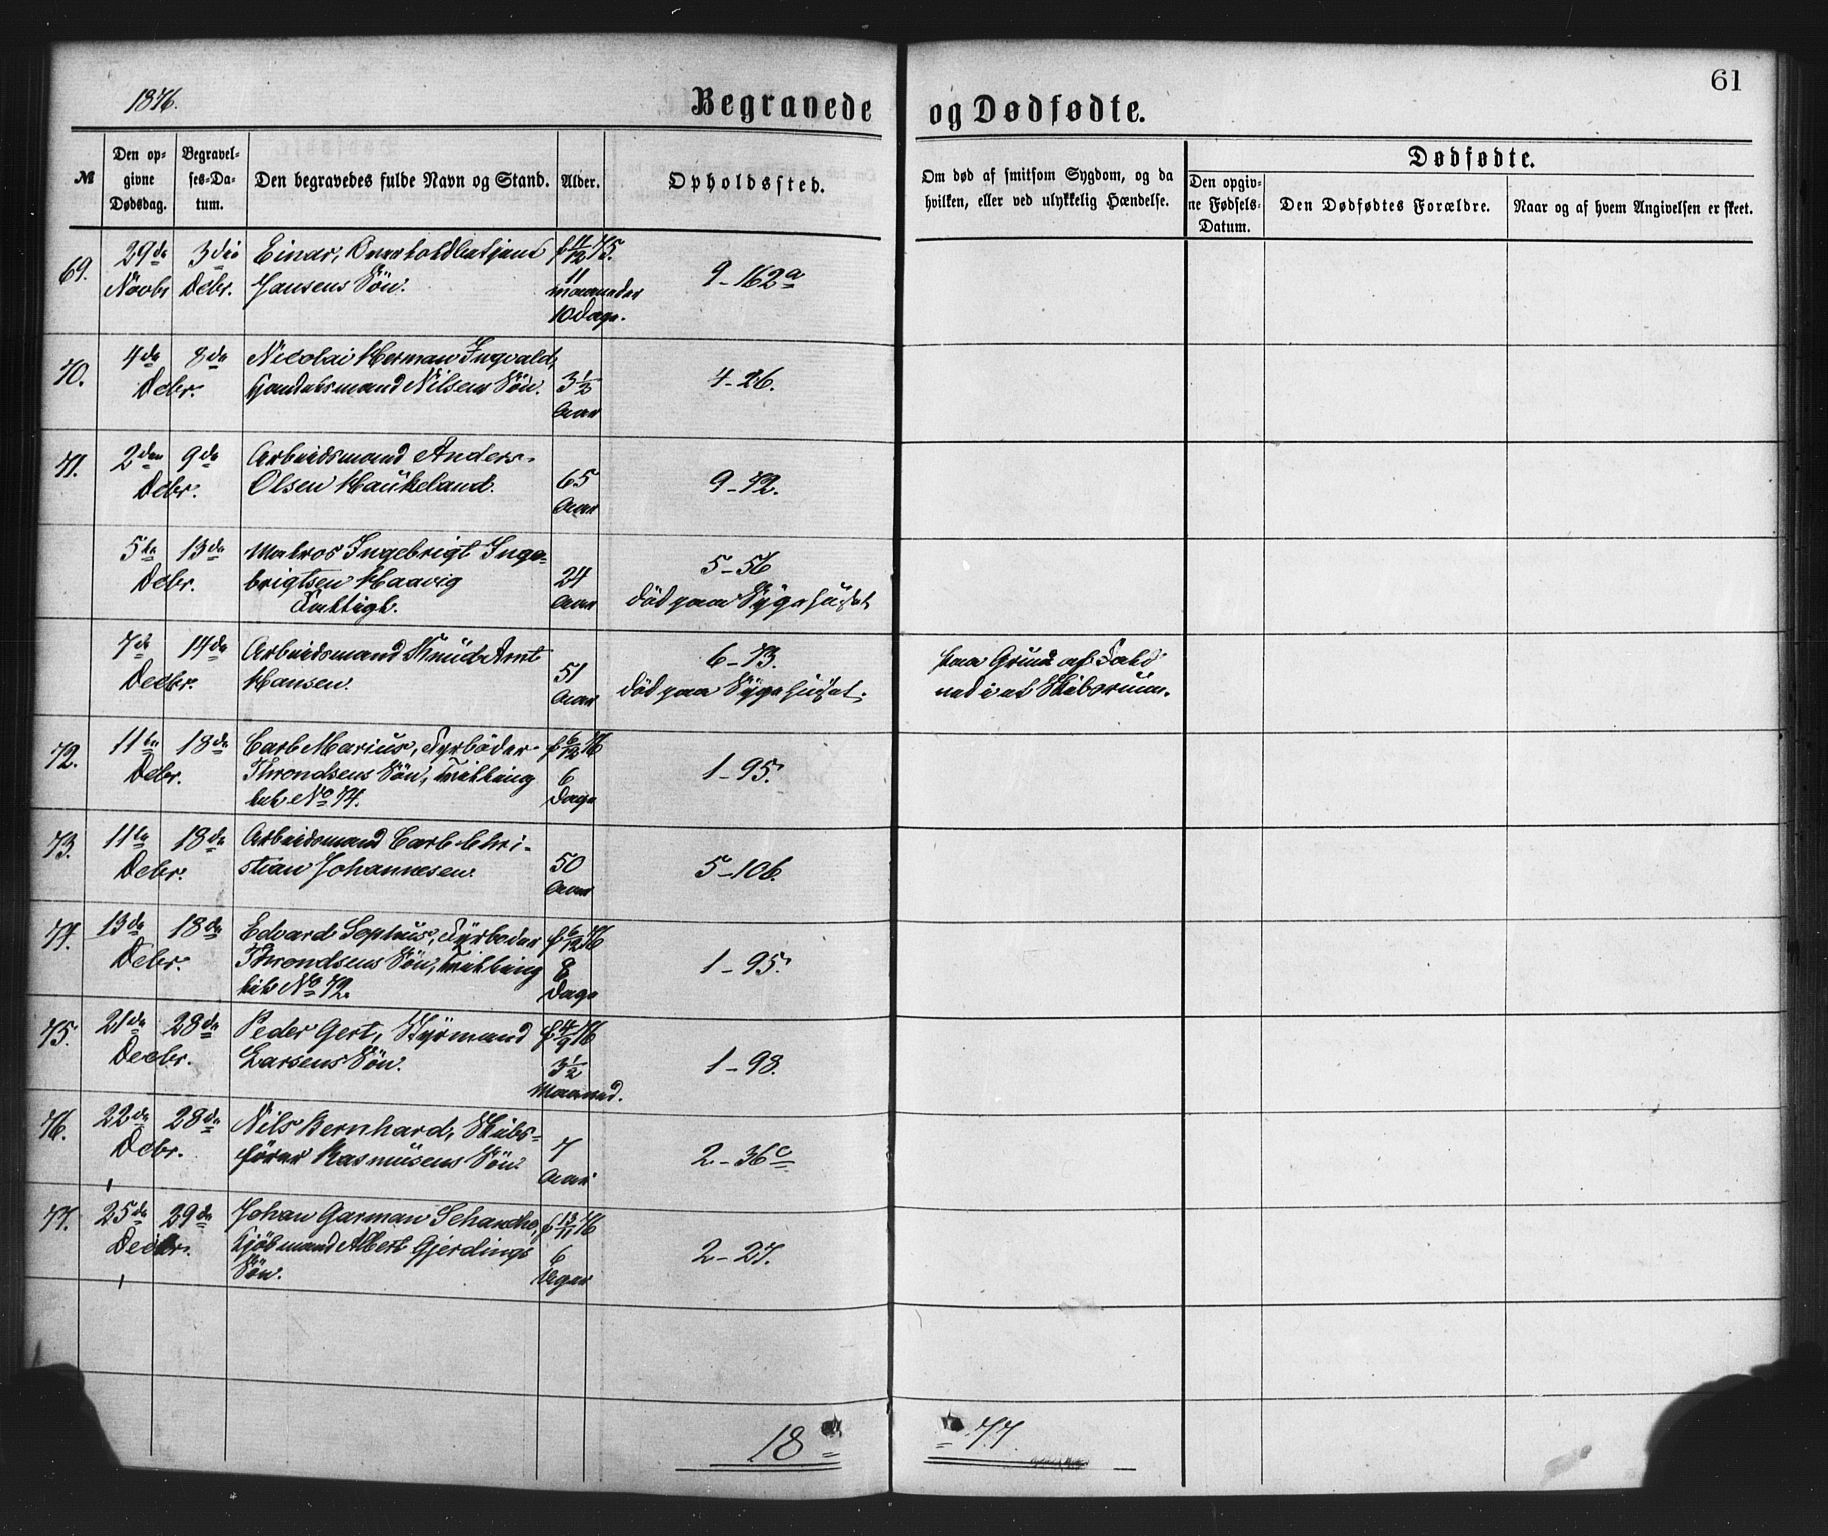 1876.
Begravede
og Dødfødte.
61
№
Den op-
givne
Dødsdag.
Begravel-
ses-Da-
tum.
Den begravedes fulde Navn og Stand.
Alder.
Opholdssted.
Om død af smitsom Sygdom, og da
hvilken, eller ved ulykkelig Hændelse.
Dødfødte.
Den opgiv-
ne Fødsels-
Datum.
Den Dødfødtes Forældre.
Naar og af hvem Angivelsen er skeet.
69.
29de
Novbr
3die
Decbr.
Einar,
Jansens Søn.
f 11/12 75.
11
maaneder
10 Dage.
9-162a
70.
4de
8de
Decbr.
Nicolai Herman Ingvald,
Handelsmand Nilsens Søn.
3½
Aar
4-26.
71.
2den
9de
Decbr.
Arbeidsmand Anders
Olsen Haukeland.
65
Aar
9-42.
5te
13de
Decbr.
Matros Ingebrigt Inge-
brigtsen Haavig
Fattigl.
24
Aar
5-56
död paa Sygehuset
7de
14de
Decbr.
Arbeidsmand Knud Amt
Hansen.
51
Aar
6-73.
död paa Sygehuset.
paa Grund af Fald
ned i et Skibsrum.
72.
11te
18de
Decbr.
Carl Marius, Fyrböder
Throndsens Søn, Tvilling
til No 74.
f 6/12 76
6
Dage
1-95.
73.
11te
18de
Decbr.
Arbeidsmand Carl Chri-
stian Johannesen.
50
Aar
5-106.
74.
13de
18de
Decbr.
Edvard Sophus, Fyrböder
Throndsens Søn, Tvilling
til No 72.
f 6/12 76
8
Dage
1-95.
75.
21de
28de
Decbr.
Peder Gert, Styrmand
Larsens Søn.
f 4/9 76
3½
Maaned.
1-98.
76.
22de
28de
Decbr.
Nils Bernhard, Skibs-
fører Rasmusens Søn.
7
Aar
2-36c
77.
25de
29de
Decbr.
Johan Garman Schanche,
Kjöbmand Albert Gjerdings
Søn.
f 13/11 76
6
Uger
2-27.
18
77.